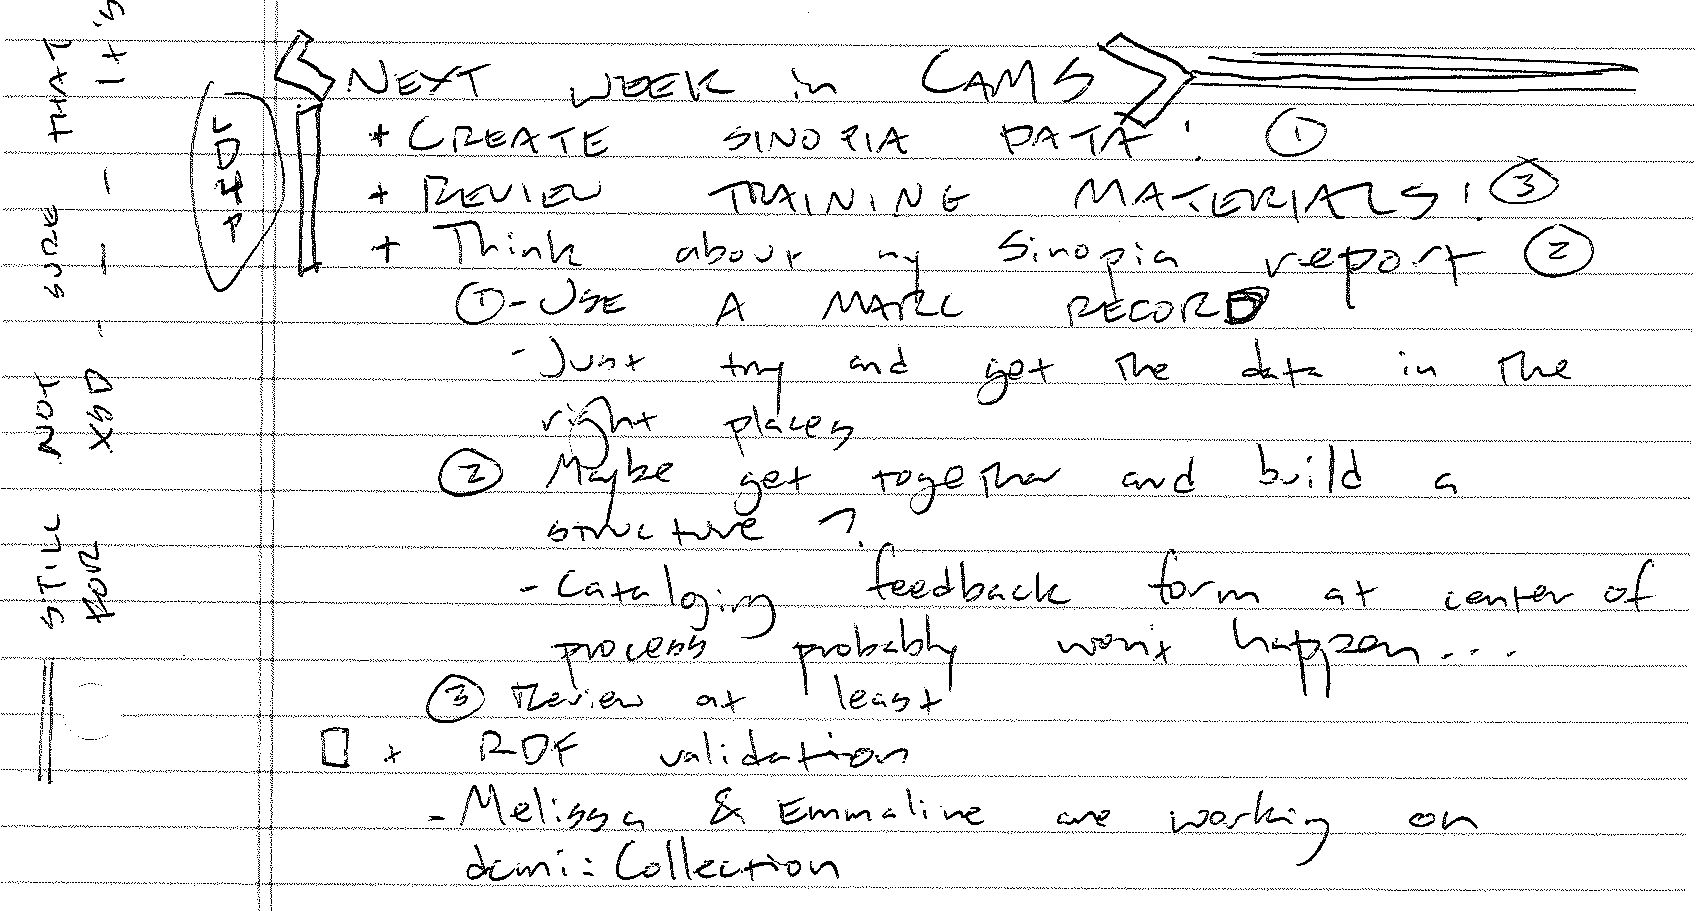 NEXT WEEK in CAMS
+ CREATE SINOPIA DATA! ①
+ REVIEW TRAINING MATERIALS! ③
+ Think about my Sinopia report ②
① - USE A MARC RECORD
- Just try and get the data in the
right places
② Maybe get together and build a
structure?
- Cataloging feedback form at center of
process probably won't happen...
③ Review at least
+ RDF validation
- Melissa & Emmaline are working on
dcmi:Collection
STILL NOT SURE THAT
XSD - - - It's